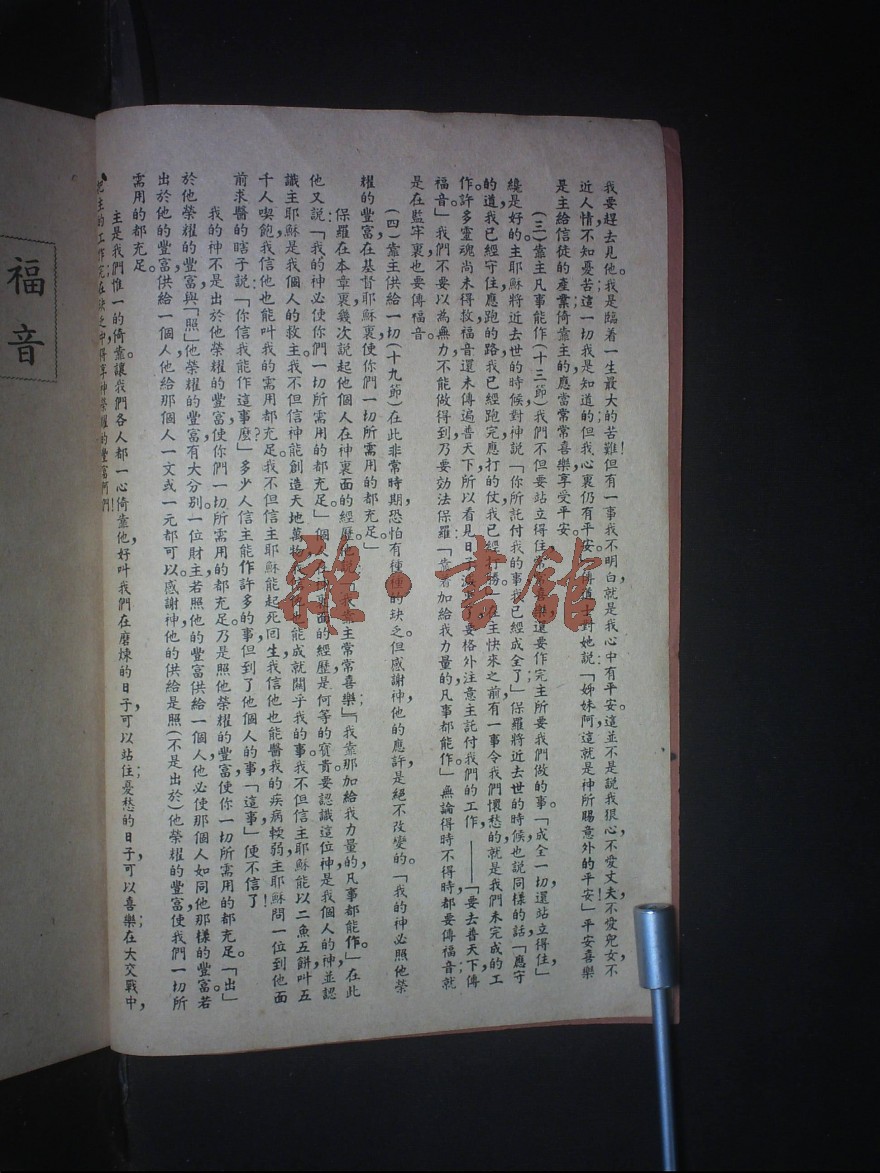 我要趕去見他。我是臨着一生最大的苦難但有一事我不明白，就是我心中有平安。這並不是說我狠心，不愛丈夫，不愛兒女，不
近人情，不知憂苦；這一切我是知道的；但我心裏仍有平安。傳道對她說：「姊妹阿，這就是神所賜意外的平安！」平安喜樂
是主給信徒的產業；倚靠主的應當常常喜樂，享受平安。
(三)靠主凡事能作(十三節)我們不但要站立得住，常常喜樂，還要作完主所要我們做的事。「成全一切，還站立得住，」
纔是好的。主耶穌將近去世的時候，對神說：「你所託付我的事，我已經成全了」保羅將近去世的時候，也說同樣的話：「應守
的道，我已經守住；應跑的路，我已經跑完；應打的仗，我已經打勝。」在主快來之前，有一事令我們懷愁的，就是我們未完成的工
作，許多靈魂尚未得救，福音還未傳遍普天下。所以看見日子要格外注意主託付我們的工作，——「要去普天下傳
福音。」我們不要以為無力，不能做得到，乃要效法保羅「靠着加給我力量的，凡事都能作。」無論得時不得時，都要傳福音；就
是在監牢裏，也要傳福音。
(四)靠主供給一切(十九節)在此非常時期，恐怕有種種的缺乏，但感謝神，他的應許是絕不改變的。「我的神必照他榮
耀的豐富，在基督耶穌裏，使你們一切所需用的都充足。」
保羅在本章裏幾次說起他個人在神裏面的經歷。他說「我靠主常常喜樂。」「我靠那加給我力量的，凡事都能作。」在此
他又說：「我的神必使你們一切所需用的都充足。」個人在神裏面的經歷是何等的寶貴。要認識這位神是我個人的神，並認
識主耶穌是我個人的救主。我不但信神能創造天地萬物，我信他也能成就關乎我的事。我不但信主耶穌能以二魚五餅叫五
千人喫飽，我信他也能叫我的需用都充足。我不但信主耶穌能起死回生，我信他也能醫我的疾病輭弱。主耶穌問一位到他面
前求醫的瞎子說：「你信我能作這事麼？」多少人信主能作許多的事，但到了他個人的事，「這事」便不信了！
我的神不是出於他榮耀的豐富，使你們一切所需用的都充足。乃是照他榮耀的豐富，使你一切所需用的都充足。「出」
於他榮耀的豐富，與「照」他榮耀的豐富，有大分別。一位財主，若照他的豐富供給一個人，他必使那個人如同他那樣的豐富；若
出於他的豐富供給一個人，他給那個人一文或一元都可以。感謝神，他的供給是照(不是出於)他榮耀的豐富，使我們一切所
需用的都充足。
主是我們惟一的倚靠。讓我們各人都一心倚靠他，好叫我們在磨煉的日子，可以站住；憂愁的日子，可以喜樂；在大交戰中，
的豐富
雜·書館
福音